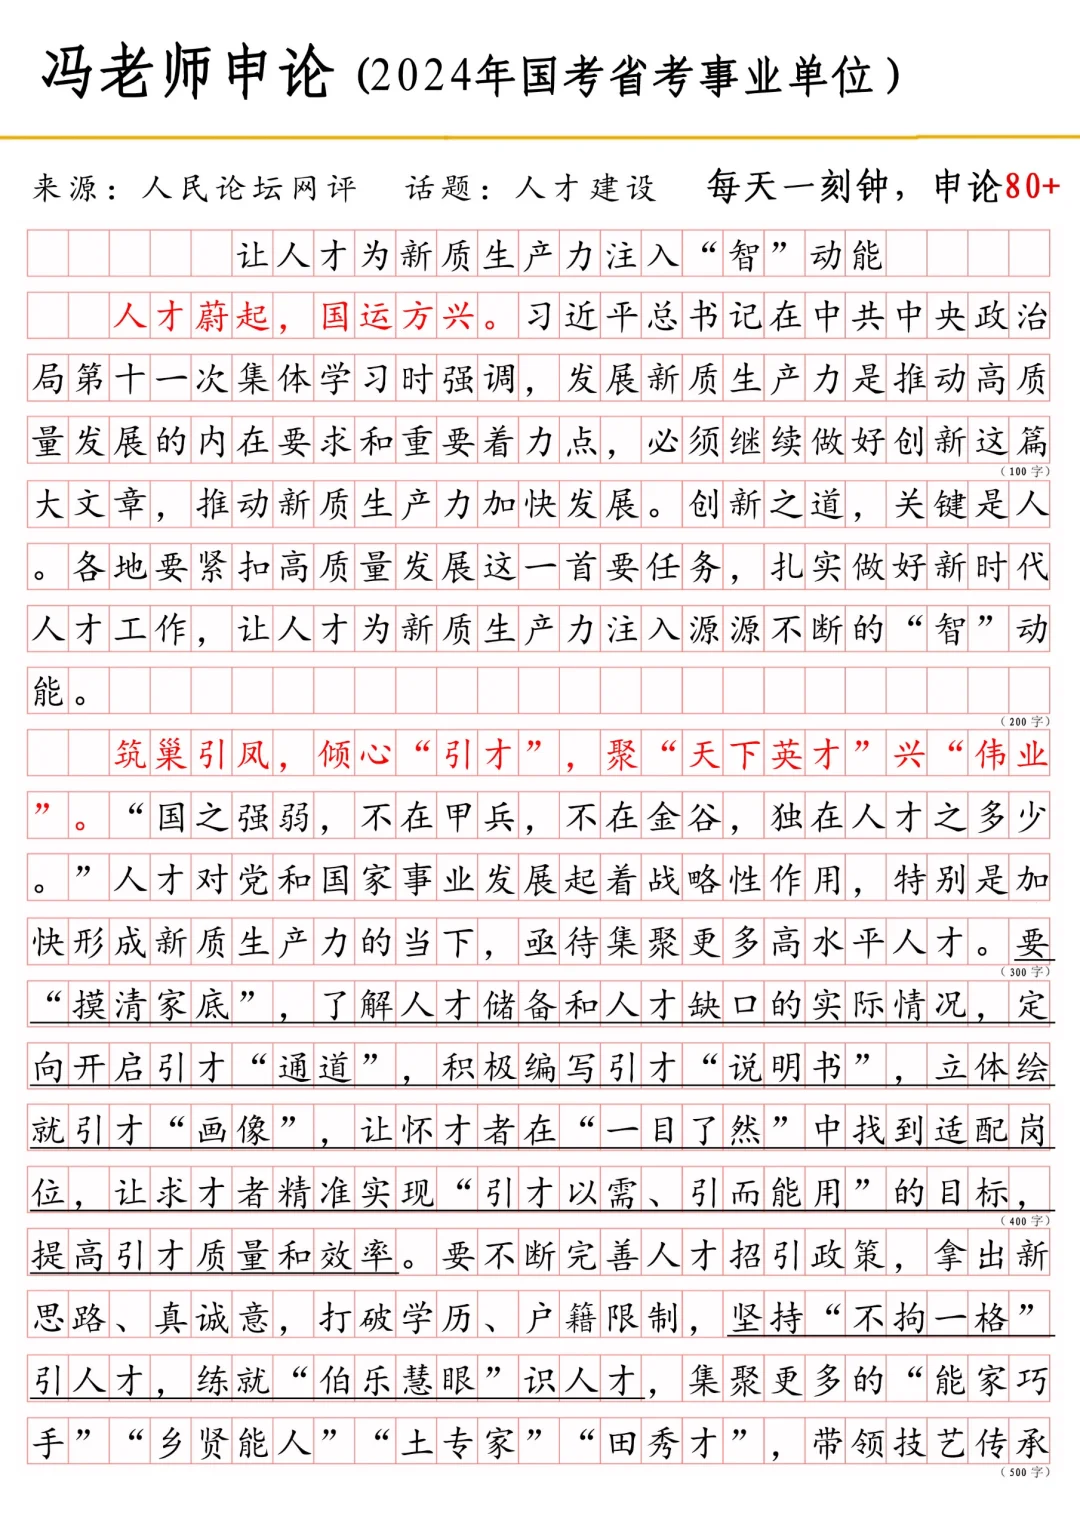 冯老师申论 (2024年国考省考事业单位)
来源：人民论坛网评 话题：人才建设 每天一刻钟，申论80+
让人才为新质生产力注入“智”动能
人才蔚起，国运方兴。习近平总书记在中共中央政治
局第十一次集体学习时强调，发展新质生产力是推动高质
量发展的内在要求和重要着力点，必须继续做好创新这篇
（100 字）
大文章，推动新质生产力加快发展。创新之道，关键是人
。各地要紧扣高质量发展这一首要任务，扎实做好新时代
人才工作，让人才为新质生产力注入源源不断的“智”动
能。
（200 字）
筑巢引凤，倾心“引才”，聚“天下英才”兴“伟业
”。“国之强弱，不在甲兵，不在金谷，独在人才之多少
。”人才对党和国家事业发展起着战略性作用，特别是加
快形成新质生产力的当下，亟待集聚更多高水平人才。要
（300 字）
“摸清家底”，了解人才储备和人才缺口的实际情况，定
向开启引才“通道”，积极编写引才“说明书”，立体绘
就引才“画像”，让怀才者在“一目了然”中找到适配岗
位，让求才者精准实现“引才以需、引而能用”的目标，
（400 字）
提高引才质量和效率。要不断完善人才招引政策，拿出新
思路、真诚意，打破学历、户籍限制，坚持“不拘一格”
引人才，练就“伯乐慧眼”识人才，集聚更多的“能家巧
手”“乡贤能人”“土专家”“田秀才”，带领技艺传承
（500 字）